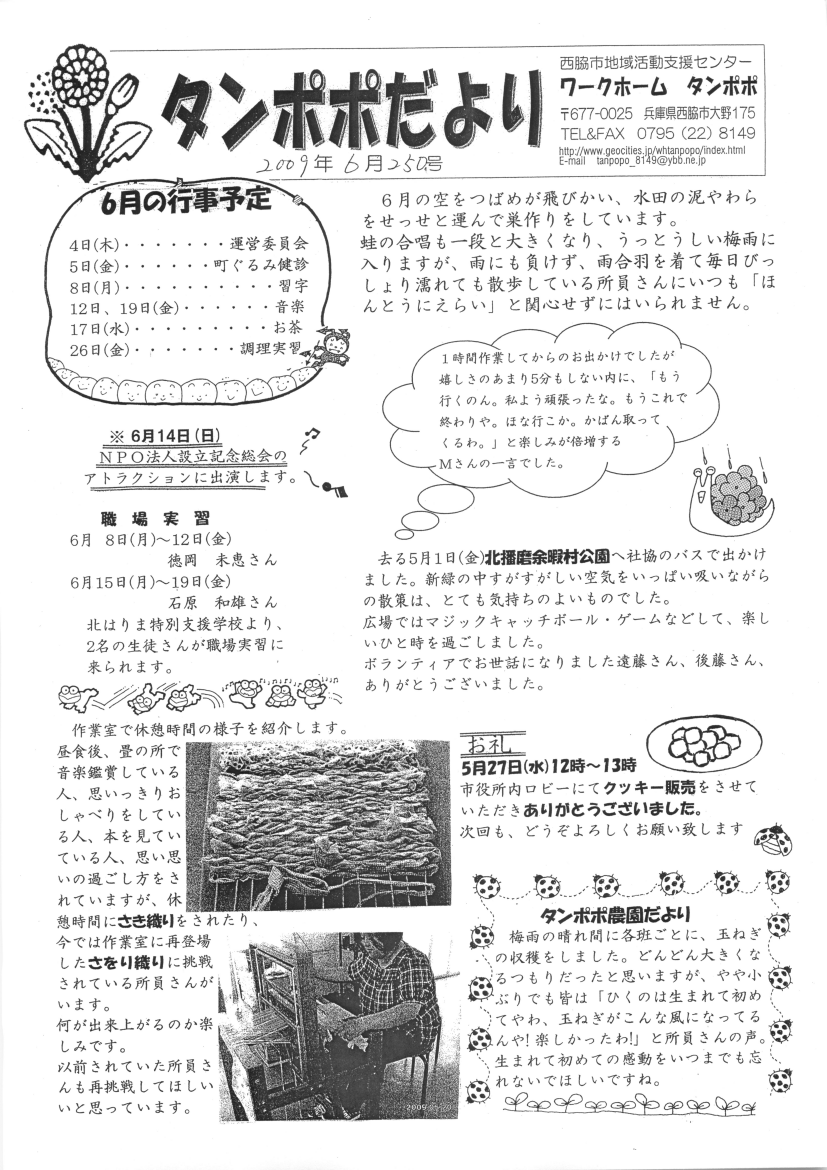 タンポポだより
2009年6月250号
西脇市地域活動支援センター
ワークホーム タンポポ
〒677-0025 兵庫県西脇市大野175
TEL&FAX 0795 (22) 8149
http://www.geocities.jp/whtanpopo/index.html
E-mail tanpopo_8149@ybb.ne.jp
6月の行事予定
4日(木)・・・・・・・運営委員会
5日(金)・・・・・・町ぐるみ健診
8日(月)・・・・・・・・・・習字
12日、19日(金)・・・・・・音楽
17日(水)・・・・・・・・・お茶
26日(金)・・・・・・・調理実習
※ 6月14日(日)
NPO法人設立記念総会の
アトラクションに出演します。
職 場 実 習
6月 8日(月)~12日(金)
徳岡 未恵さん
6月15日(月)~19日(金)
石原 和雄さん
北はりま特別支援学校より、
2名の生徒さんが職場実習に
来られます。
6月の空をつばめが飛びかい、水田の泥やわら
をせっせと運んで巣作りをしています。
蛙の合唱も一段と大きくなり、うっとうしい梅雨に
入りますが、雨にも負けず、雨合羽を着て毎日びっ
しょり濡れても散歩している所員さんにいつも「ほ
んとうにえらい」と関心せずにはいられません。
1時間作業してからのお出かけでしたが
嬉しさのあまり5分もしない内に、「もう
行くのん。私よう頑張ったな。もうこれで
終わりや。ほな行こか。かばん取って
くるわ。」と楽しみが倍増する
Mさんの一言でした。
去る5月1日(金)北播磨余暇村公園へ社協のバスで出かけ
ました。新緑の中すがすがしい空気をいっぱい吸いながら
の散策は、とても気持ちのよいものでした。
広場ではマジックキャッチボール・ゲームなどして、楽し
いひと時を過ごしました。
ボランティアでお世話になりました遠藤さん、後藤さん、
ありがとうございました。
作業室で休憩時間の様子を紹介します。
昼食後、畳の所で
音楽鑑賞している
人、思いっきりお
しゃべりをしてい
る人、本を見てい
ている人、思い思
いの過ごし方をさ
れていますが、休
憩時間にさき織りをされたり、
今では作業室に再登場
したさをり織りに挑戦
されている所員さんが
います。
何が出来上がるのか楽
しみです。
以前されていた所員さ
んも再挑戦してほしい
いと思っています。
お礼
5月27日(水)12時~13時
市役所内ロビーにてクッキー販売をさせて
いただきありがとうございました。
次回も、どうぞよろしくお願い致します
タンポポ農園だより
梅雨の晴れ間に各班ごとに、玉ねぎ
の収穫をしました。どんどん大きくな
るつもりだったと思いますが、やや小
ぶりでも皆は「ひくのは生まれて初め
てやわ、玉ねぎがこんな風になってる
んや!楽しかったわ!」と所員さんの声。
生まれて初めての感動をいつまでも忘
れないでほしいですね。